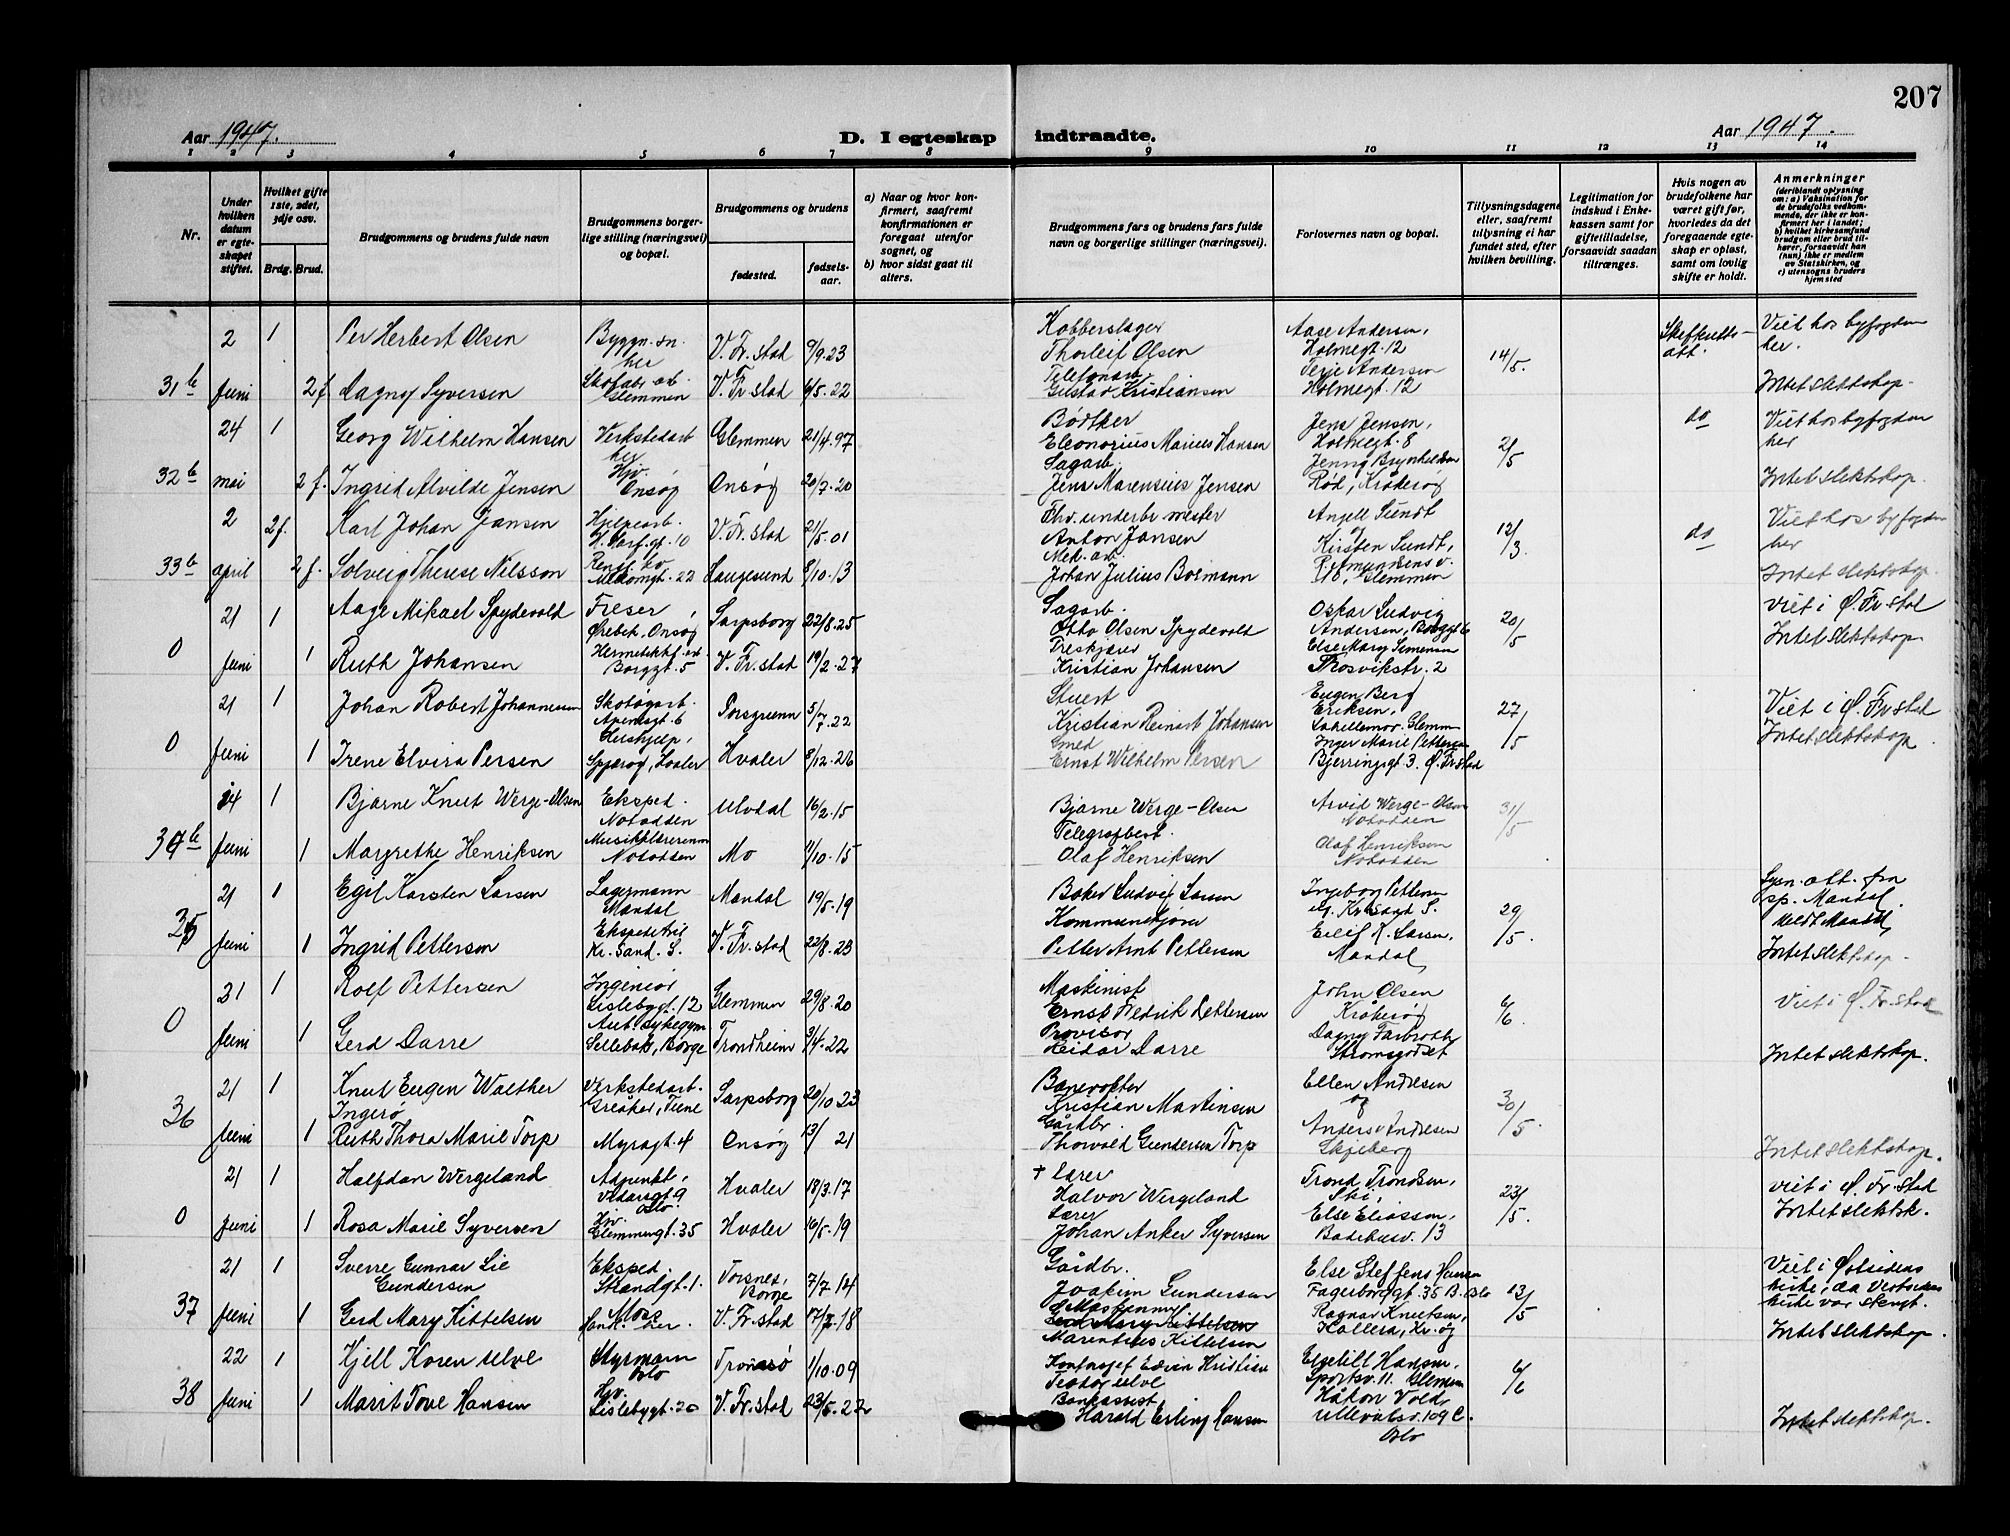 207
Aar 1947.
D. I egteskap indtraadte.
Aar 1947.
1 2 3 4 5 6 7 8 9 10 11 12 13 14
Nr.
Under hvilken datum er egteskapet stiftet.
Hvilket gifte 1ste, 2det, 3dje osv.
Brdg. Brud.
Brudgommens og brudens fulde navn
Brudgommens borgerlige stilling (næringsvei) og bopæl.
Brudgommens og brudens
fødested.
fødselsaar.
a) Naar og hvor konfirmert, saafremt konfirmationen er foregaat utenfor sognet, og
b) hvor sidst gaat til alters.
Brudgommens fars og brudens fars fulde navn og borgerlige stillinger (næringsvei).
Forlovernes navn og bopæl.
Tillysningsdagene eller, saafremt tillysning ei har fundet sted, efter hvilken bevilling.
Legitimation for indskud i Enkekassen samt for giftetilladelse, forsaavidt saadan tiltrænges.
Hvis nogen av brudefolkene har været gift før, hvorledes da det foregaaende egteskap er opløst, samt om lovlig skifte er holdt.
Anmerkninger
(deriblandt oplysning om: a) Vaksination for de brudefolks vedkommende, der ikke er konfirmert her i landet; b) hvilket kirkesamfund brudgom eller brud tilhører, forsaavidt han (hun) ikke er medlem av Statskirken, og c) utensogns bruders hjemsted
2 1 Per Herbert Olsen Byggn. her V. Fr.stad 9/9.23 Kobberslager Thorleif Olsen Aase Andersen, Holmegt. 12 14/5. Viet hos byfogden her.
31b juni 2 f. Dagny Syversen Skofabr. arb. Glemmen V. Fr.stad 6/5.22 Telefonarb. Gustav Kristiansen Terje Andersen Holmegt. 12 Intet slektskap.
24 1 Georg Wilhelm Hansen Verkstedarb. her Glemmen 21/4.97 Bødtker Eleonorius Marius Hansen Jens Jensen, Holmegt. 8 2/5 do Viet hos byfogden her
32b mai 2 f. Ingrid Alvilde Jensen Hjv. Onsøy Onsøy 20/7.20 Sagarb. Jens Marensius Jensen Jenny Brynhildsen Rød, Kråkerøy Intet slektskap.
2 2f. Karl Johan Jansen Hjelpearb. V. Fr.stad 21/5.01 Anton Jansen Angell Sundt og 12/3. do Viet hos byfogden her
33b april 2 f. Solveig Therese Nilsson Haugesund 8/10.13 Mek. arb. Johan Julius Boemann Kirsten Sundt, Glemmen Intet slektskap.
21 1 Aage Mikael Spydevold Freser Ørebek, Onsøy Sarpsborg 22/8.25 Sagarb. Otto Olsen Spydevold Oskar Ludvig Andersen, Borggt 6 20/5 Viet i Ø. Fr.stad
0 juni 1 Ruth Johansen Hermetikkf. arb. Borggt. 5 V. Fr.stad 19/2.27 Kristian Johansen Else Mary Simensen Trosvikstr. 2 Intet slektskap
21 1 Johan Robert Johannessen Skotøyarb. Apenesgt. 6 Porsgrunn 5/7.22 Stuert Kristian Reinart Johansen Eugen Berg Eriksen, Glemm 27/5 Viet i Ø. Fr.stad
0 juni 1 Irene Elvira Persen Hushjelp, Spjærøy, Hvaler Hvaler 8/12.26 Smed Ernst Wilhelm Persen Inger Marie Pettersen Bjerringgt. 3. Ø. Fr.stad Intet slektskap
14 1 Bjarne Knut Werge-Olsen Eksped. Notodden Ulvdal 16/2.15 Bjarne Werge-Olsen Telegrafbest. Arvid Werge-Olsen Notodden 31/5
34b juni 1 Margrethe Henriksen Musikklærerinne Notodden Mo 11/10.15 Olaf Henriksen Olaf Henriksen Notodden
21 1 Egil Karsten Larsen Lagermann Mandal Mandal 19/5.19 Baker Ludvig Larsen Ingeborg Pettersen Kr.sand S. 29/5. Lysn. att. fra sp. Mandal.
35 juni 1 Ingrid Pettersen Ekspeditris Kr. Sand. S. V. Fr.stad 22/8.23 Kommunekjører Petter Arnt Pettersen Eilif K. Larsen, Mandal Intet slektskap.
21 1 Rolf Pettersen Ingeniør Lislebygt. 12 Glemmen 29/8.20 Maskinist Ernst Fredrik Pettersen John Olsen Kråkerøy 6/6. Viet i Ø. Fr.stad
0 juni 1 Gerd Darre Aut. sykegym. Sellebakk, Borge Trondheim 3/4.22 Provisor Reidar Darre Dagny Farbroth Strømsgodset Intet slektskap.
21 1 Knut Eugen Walther Ingerø Verkstedarb. Greåker, Tune Sarpsborg 20/10 23 Banevokter Kristian Martinsen Ellen Andresen og 30/5.
36 juni 1 Ruth Thora Marie Torp Myragt. 4 Onsøy 13/ 21 Gårdbr. Thorvald Gundersen Torp Anders Andresen Skjeberg Intet slektskap.
21 1 Halfdan Wergeland Adjunkt, Vidarsgt 9 Oslo. Hvaler 18/3.17 † Lærer Halvor Wergeland Trond Trondsen, Ski, 23/5. Viet i Ø. Fr.stad
0 juni 1 Rosa Marie Syversen Hjv. Glemmengt. 35 Hvaler 16/5.19 Lærer Johan Anker Syversen Else Eliassen, Badehusv. 13 Intet slektsk.
21 1 Sverre Gunnar Lie Gundersen Eksped. Strandgt. 1. Moss Torsnes, Borge 7/7 14 Gårdbr. Joakim Gundersen Else Steffens Hansen Fagerborggt. 35 B. Oslo 13/5 Viet i Østsidens kirke, da Vestsidens kirke var stengt.
37 juni 1 Gerd Mary Kittelsen her. V. Fr.stad 17/7.18 Gerd Mary Kittelsen Marentius Kittelsen Ragnar Knutsen, Kallera, Kr.øy Intet slektskap.
22 1 Kjell Koren Ulve Styrmann Oslo Tromsø 1/10.09 Edvin Kristian Teodor Ulve Hansen, Sportsv. 11. Glemmen 6/6
38 juni 1 Marit Tove Hansen Hjv. Lislebygt. 20 V. Fr.stad 23/5.22 Bankassist. Harald Erling Hansen Håkon Vold, Ullevålsv. 109 C. Oslo Intet slektskap.